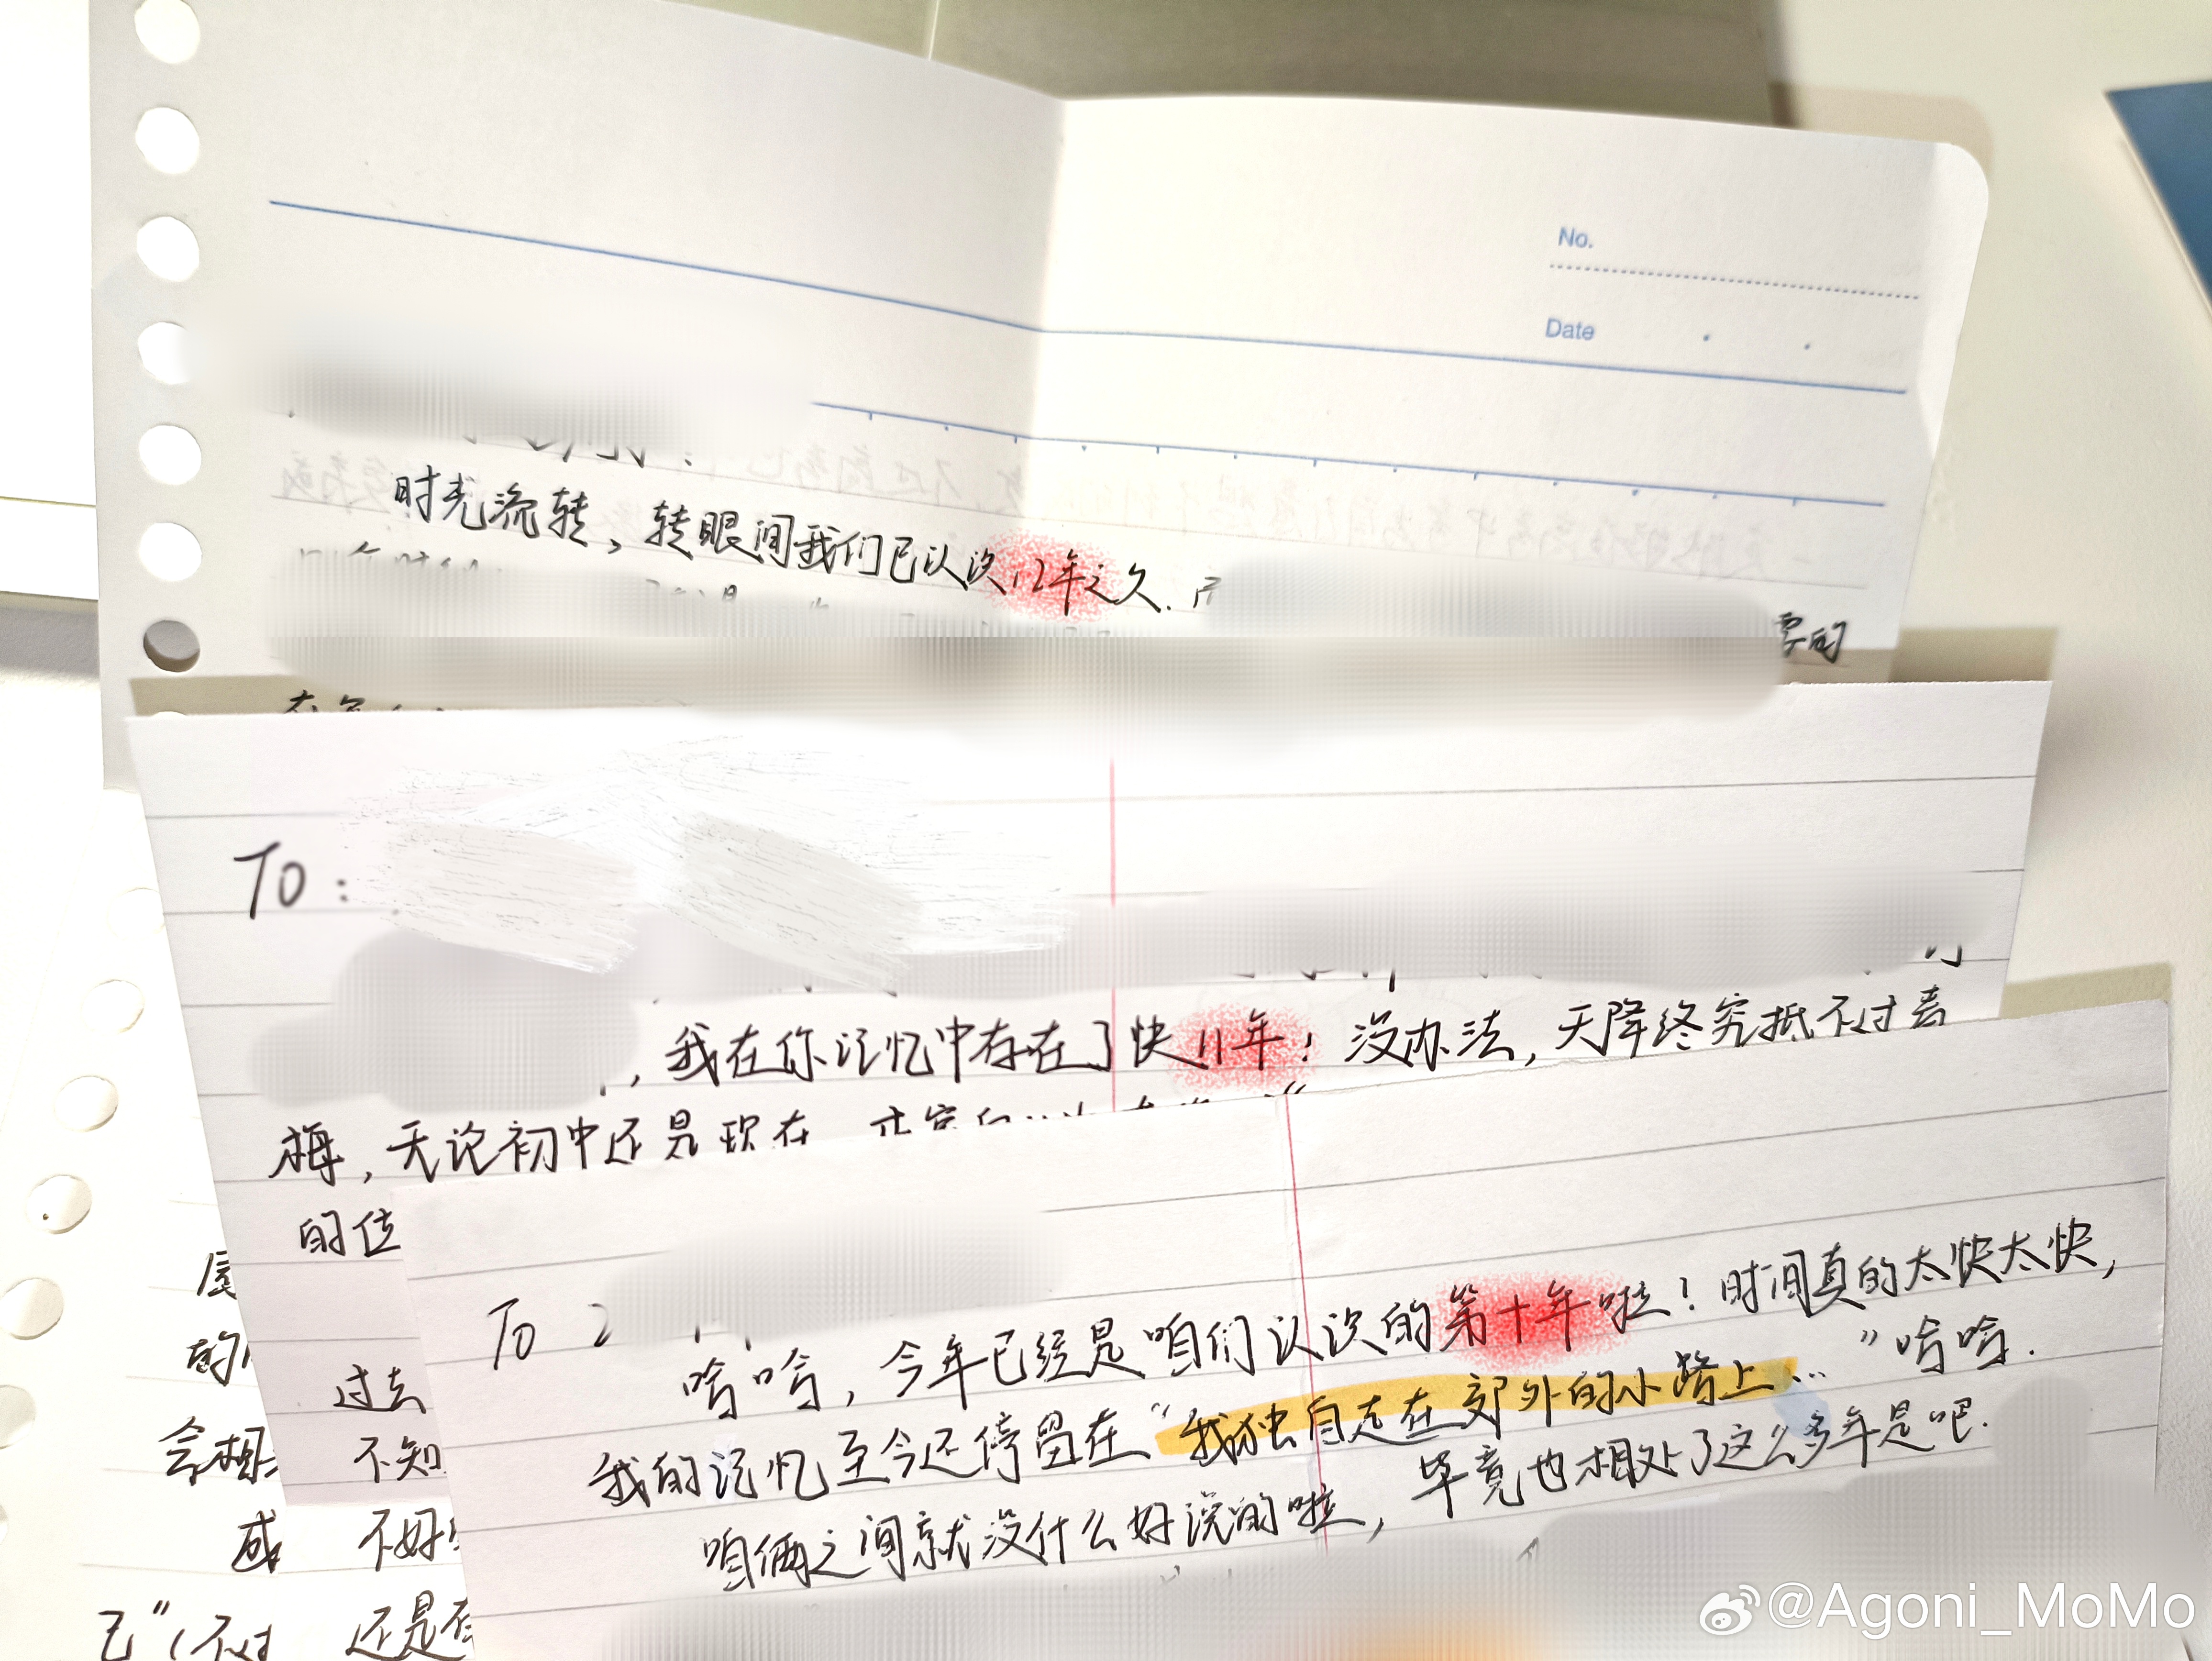 No.
Date
时光流转，转眼间我们已认次12年之久.
要的
To：
，我在你记忆中存在了快11年！没办法，天降终究抵不过青
梅，无论初中还是现在
的位
To
哈哈，今年已经是咱们认次的第十年啦！时间真的太快太快，
我的记忆至今还停留在“我独自走在郊外的小路上...”哈哈.
咱俩之间就没什么好说的啦，毕竟也相处了这么多年是吧.
的
会想
感
己”（不过
过去
不知
不好
还是
@Agoni_MoMo